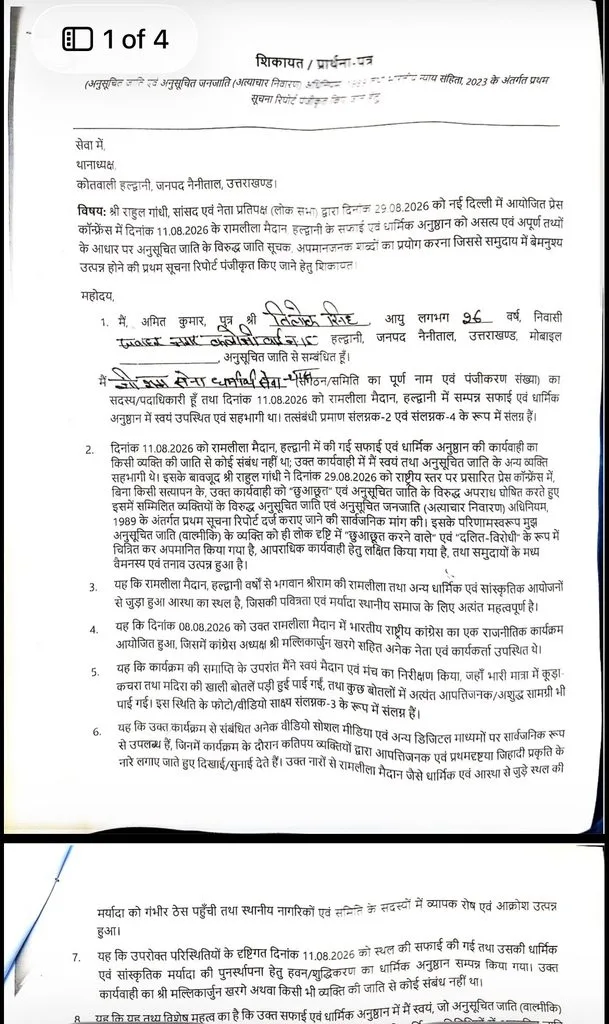 1 of 4
शिकायत / प्रार्थना-पत्र
(अनुसूचित जाति एवं अनुसूचित जनजाति (अत्याचार निवारण) अधिनियम 1989 तथा भारतीय न्याय संहिता, 2023 के अंतर्गत प्रथम
सूचना रिपोर्ट पंजीकृत किए जाने हेतु
सेवा में,
थानाध्यक्ष,
कोतवाली हल्द्वानी, जनपद नैनीताल, उत्तराखण्ड।
विषय: श्री राहुल गांधी, सांसद एवं नेता प्रतिपक्ष (लोक सभा) द्वारा दिनांक 29.08.2026 को नई दिल्ली में आयोजित प्रेस
कॉन्फ्रेंस में दिनांक 11.08.2026 के रामलीला मैदान, हल्द्वानी के सफाई एवं धार्मिक अनुष्ठान को असत्य एवं अपूर्ण तथ्यों
के आधार पर अनुसूचित जाति के विरुद्ध जाति सूचक, अपमानजनक शब्दों का प्रयोग करना जिससे समुदाय में बेमनुश्य
उत्पन्न होने की प्रथम सूचना रिपोर्ट पंजीकृत किए जाने हेतु शिकायत।
महोदय,
1. मैं, अमित कुमार, पुत्र श्री तिलोक सिंह आयु लगभग 26 वर्ष, निवासी
हल्द्वानी, जनपद नैनीताल, उत्तराखण्ड, मोबाइल
, अनुसूचित जाति से सम्बंधित हूँ।
मैं (संगठन/समिति का पूर्ण नाम एवं पंजीकरण संख्या) का
सदस्य/पदाधिकारी हूँ तथा दिनांक 11.08.2026 को रामलीला मैदान, हल्द्वानी में सम्पन्न सफाई एवं धार्मिक
अनुष्ठान में स्वयं उपस्थित एवं सहभागी था। तत्संबंधी प्रमाण संलग्नक-2 एवं संलग्नक-4 के रूप में संलग्न हैं।
2. दिनांक 11.08.2026 को रामलीला मैदान, हल्द्वानी में की गई सफाई एवं धार्मिक अनुष्ठान की कार्यवाही का
किसी व्यक्ति की जाति से कोई संबंध नहीं था; उक्त कार्यवाही में मैं स्वयं तथा अनुसूचित जाति के अन्य व्यक्ति
सहभागी थे। इसके बावजूद श्री राहुल गांधी ने दिनांक 29.08.2026 को राष्ट्रीय स्तर पर प्रसारित प्रेस कॉन्फ्रेंस में,
बिना किसी सत्यापन के, उक्त कार्यवाही को "छुआछूत" एवं अनुसूचित जाति के विरुद्ध अपराध घोषित करते हुए
इसमें सम्मिलित व्यक्तियों के विरुद्ध अनुसूचित जाति एवं अनुसूचित जनजाति (अत्याचार निवारण) अधिनियम,
1989 के अंतर्गत प्रथम सूचना रिपोर्ट दर्ज कराए जाने की सार्वजनिक मांग की। इसके परिणामस्वरूप मुझ
अनुसूचित जाति (वाल्मीकि) के व्यक्ति को ही लोक दृष्टि में "छुआछूत करने वाले" एवं "दलित-विरोधी" के रूप में
चित्रित कर अपमानित किया गया है, आपराधिक कार्यवाही हेतु लक्षित किया गया है, तथा समुदायों के मध्य
वैमनस्य एवं तनाव उत्पन्न हुआ है।
3. यह कि रामलीला मैदान, हल्द्वानी वर्षों से भगवान श्रीराम की रामलीला तथा अन्य धार्मिक एवं सांस्कृतिक आयोजनों
से जुड़ा हुआ आस्था का स्थल है, जिसकी पवित्रता एवं मर्यादा स्थानीय समाज के लिए अत्यंत महत्वपूर्ण है।
4. यह कि दिनांक 08.08.2026 को उक्त रामलीला मैदान में भारतीय राष्ट्रीय कांग्रेस का एक राजनीतिक कार्यक्रम
आयोजित हुआ, जिसमें कांग्रेस अध्यक्ष श्री मल्लिकार्जुन खरगे सहित अनेक नेता एवं कार्यकर्ता उपस्थित थे।
5. यह कि कार्यक्रम की समाप्ति के उपरांत मैंने स्वयं मैदान एवं मंच का निरीक्षण किया, जहाँ भारी मात्रा में कूड़ा-
कचरा तथा मदिरा की खाली बोतलें पड़ी हुई पाई गईं, तथा कुछ बोतलों में अत्यंत आपत्तिजनक/अशुद्ध सामग्री भी
पाई गई। इस स्थिति के फोटो/वीडियो साक्ष्य संलग्नक-3 के रूप में संलग्न हैं।
6. यह कि उक्त कार्यक्रम से संबंधित अनेक वीडियो सोशल मीडिया एवं अन्य डिजिटल माध्यमों पर सार्वजनिक रूप
से उपलब्ध हैं, जिनमें कार्यक्रम के दौरान कतिपय व्यक्तियों द्वारा आपत्तिजनक एवं प्रथमदृष्टया जिहादी प्रकृति के
नारे लगाए जाते हुए दिखाई/सुनाई देते हैं। उक्त नारों से रामलीला मैदान जैसे धार्मिक एवं आस्था से जुड़े स्थल की
मर्यादा को गंभीर ठेस पहुँची तथा स्थानीय नागरिकों एवं समिति के सदस्यों में व्यापक रोष एवं आक्रोश उत्पन्न
हुआ।
7. यह कि उपरोक्त परिस्थितियों के दृष्टिगत दिनांक 11.08.2026 को स्थल की सफाई की गई तथा उसकी धार्मिक
एवं सांस्कृतिक मर्यादा की पुनर्स्थापना हेतु हवन/शुद्धिकरण का धार्मिक अनुष्ठान सम्पन्न किया गया। उक्त
कार्यवाही का श्री मल्लिकार्जुन खरगे अथवा किसी भी व्यक्ति की जाति से कोई संबंध नहीं था।
8. यह कि यह तथ्य विशेष महत्व का है कि उक्त सफाई एवं धार्मिक अनुष्ठान में मैं स्वयं, जो अनुसूचित जाति (वाल्मीकि)